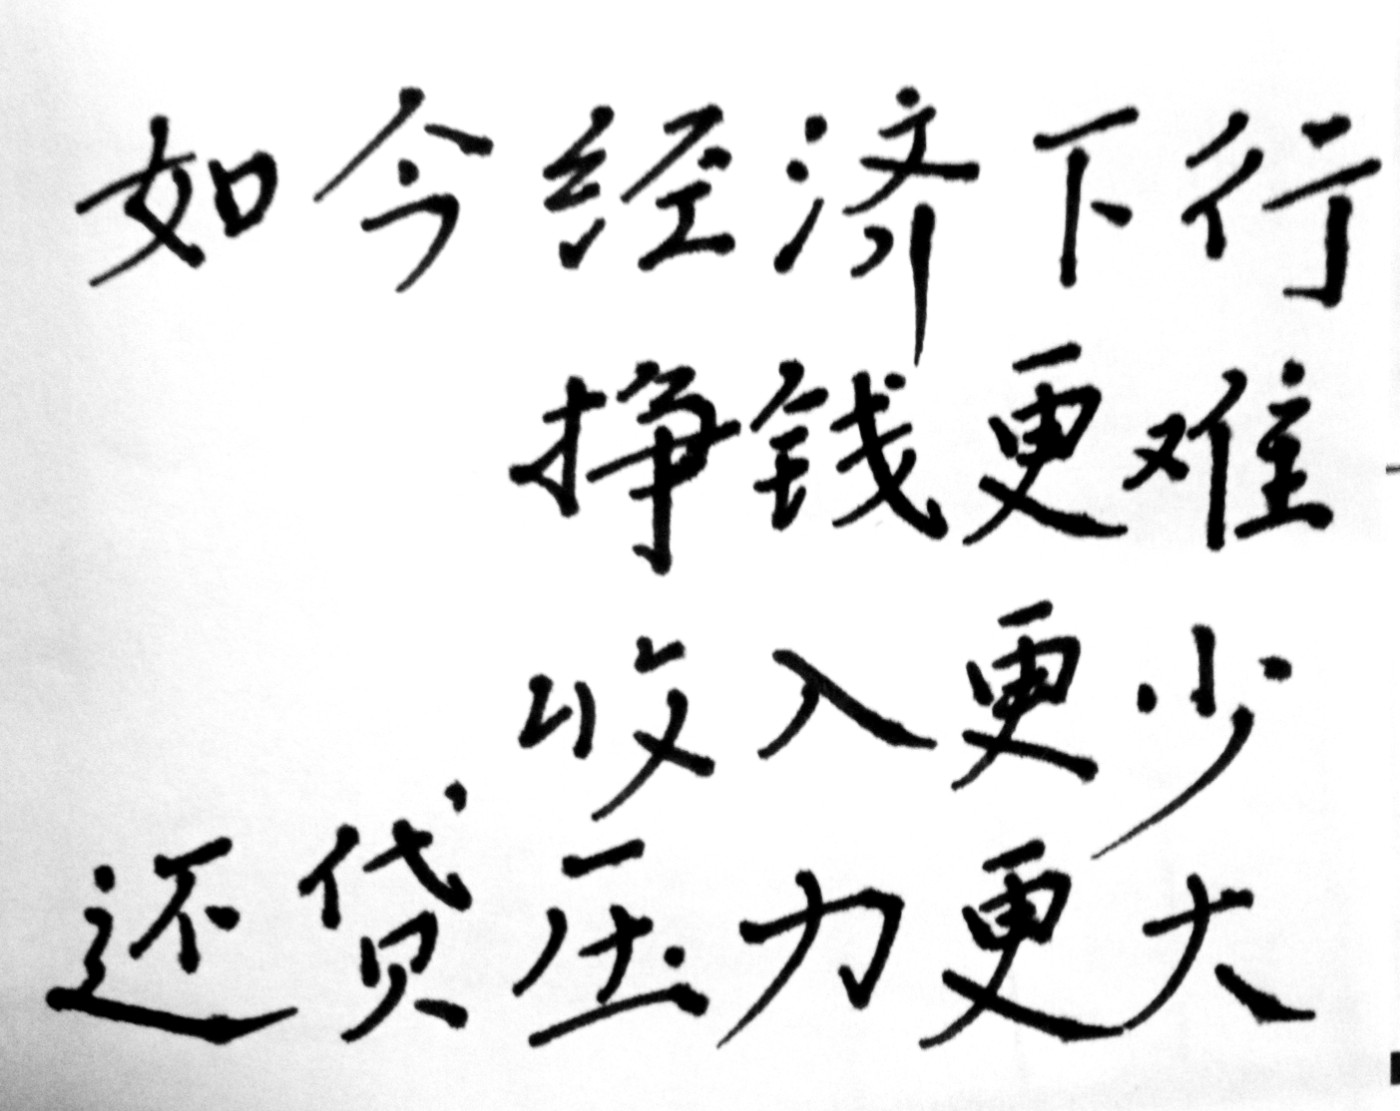 如今经济下行
挣钱更难
收入更少
还贷压力更大